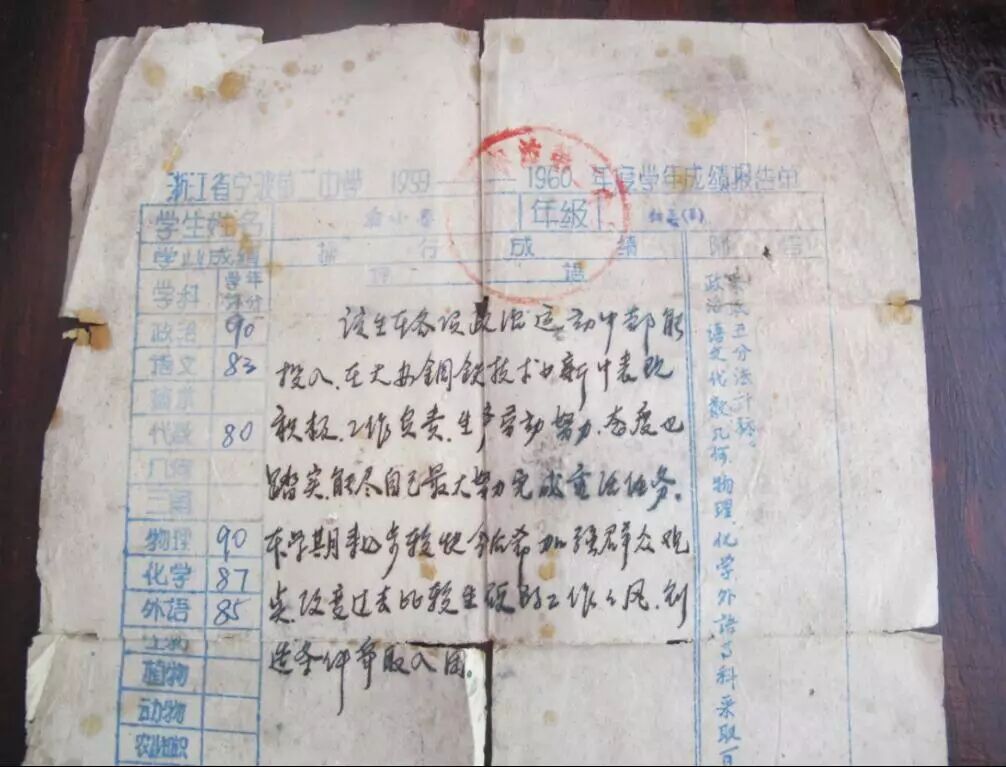 浙江省宁波第二中学 1959——1960 年度学年成绩报告单
学生姓名 小 年级
学业成绩 操行成绩 附告
学科 学年评分 评语
政治 90
语文 83
代数 80
三角
物理 90
化学 87
外语 85
生物
植物
动物
农业知识
该生在各项政治运动中都能
投入、在大办钢铁技术革新中表现
积极、工作负责、生产劳动努力、态度也
踏实、能尽自己最大努力完成任务。
本学期来进步较快今后希加强群众观
点、改变过去比较生硬的工作作风、创
造条件争取入团。
五分法计算。
政治语文代数几何、物理、化学外语等科采取百